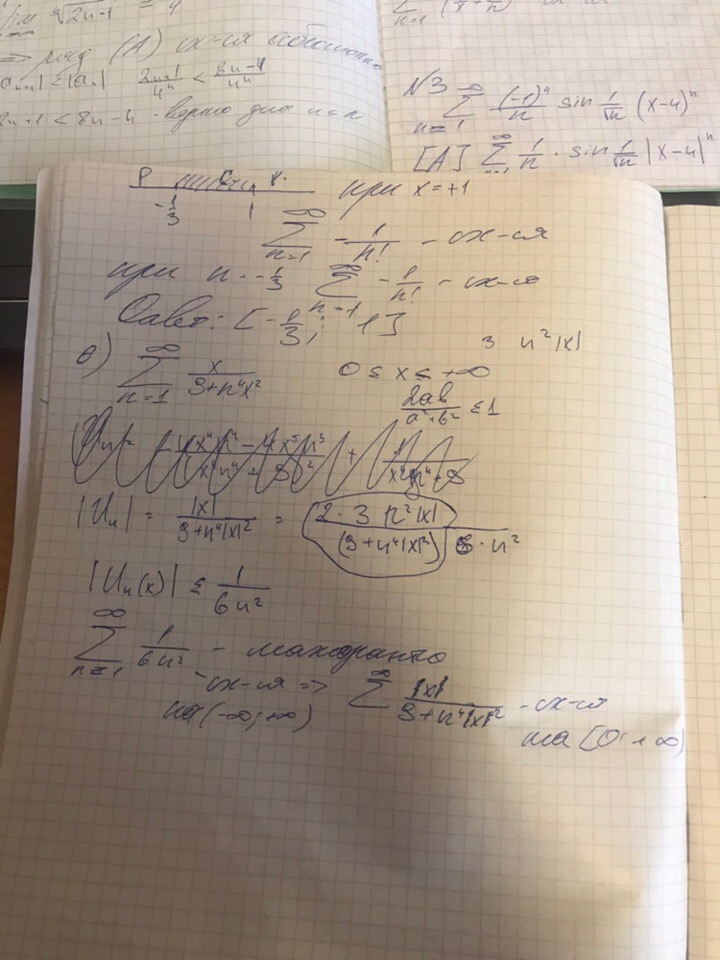 lim ⁿ√(2n-1) = 4
=> ряд (A) сх-ся абсолютно
|aₙ₊₁| ≤ |aₙ| (2n+1)/4ⁿ < (8n-4)/4ⁿ
2n+1 < 8n-4 - верно для
№3 ∑_{n=1}^∞ (-1)ⁿ/n sin 1/√n (x-4)ⁿ
[A] ∑_{n=1}^∞ 1/n · sin 1/√n |x-4|ⁿ
-1/3 1 при x=+1
∑_{n=1}^∞ -1/n! - сх-ся
при n = -1/3 ∑_{n=1}^∞ -1/n! - сх-ся
Ответ: [-1/3; 1]
3 n²|x|
в) ∑_{n=1}^∞ x/(9+n⁴x²) 0 ≤ x ≤ +∞
2ab/(a²+b²) ≤ 1
|Uₙ| = |x|/(9+n⁴|x|²) = 2·3 n²|x|/((9+n⁴|x|²) 6·n²)
|Uₙ(x)| ≤ 1/(6n²)
∑_{n=1}^∞ 1/(6n²) - мажоранта
-сх-ся => ∑^∞ |x|/(9+n⁴|x|²) - сх-ся
на (-∞; +∞)
на [0; +∞)